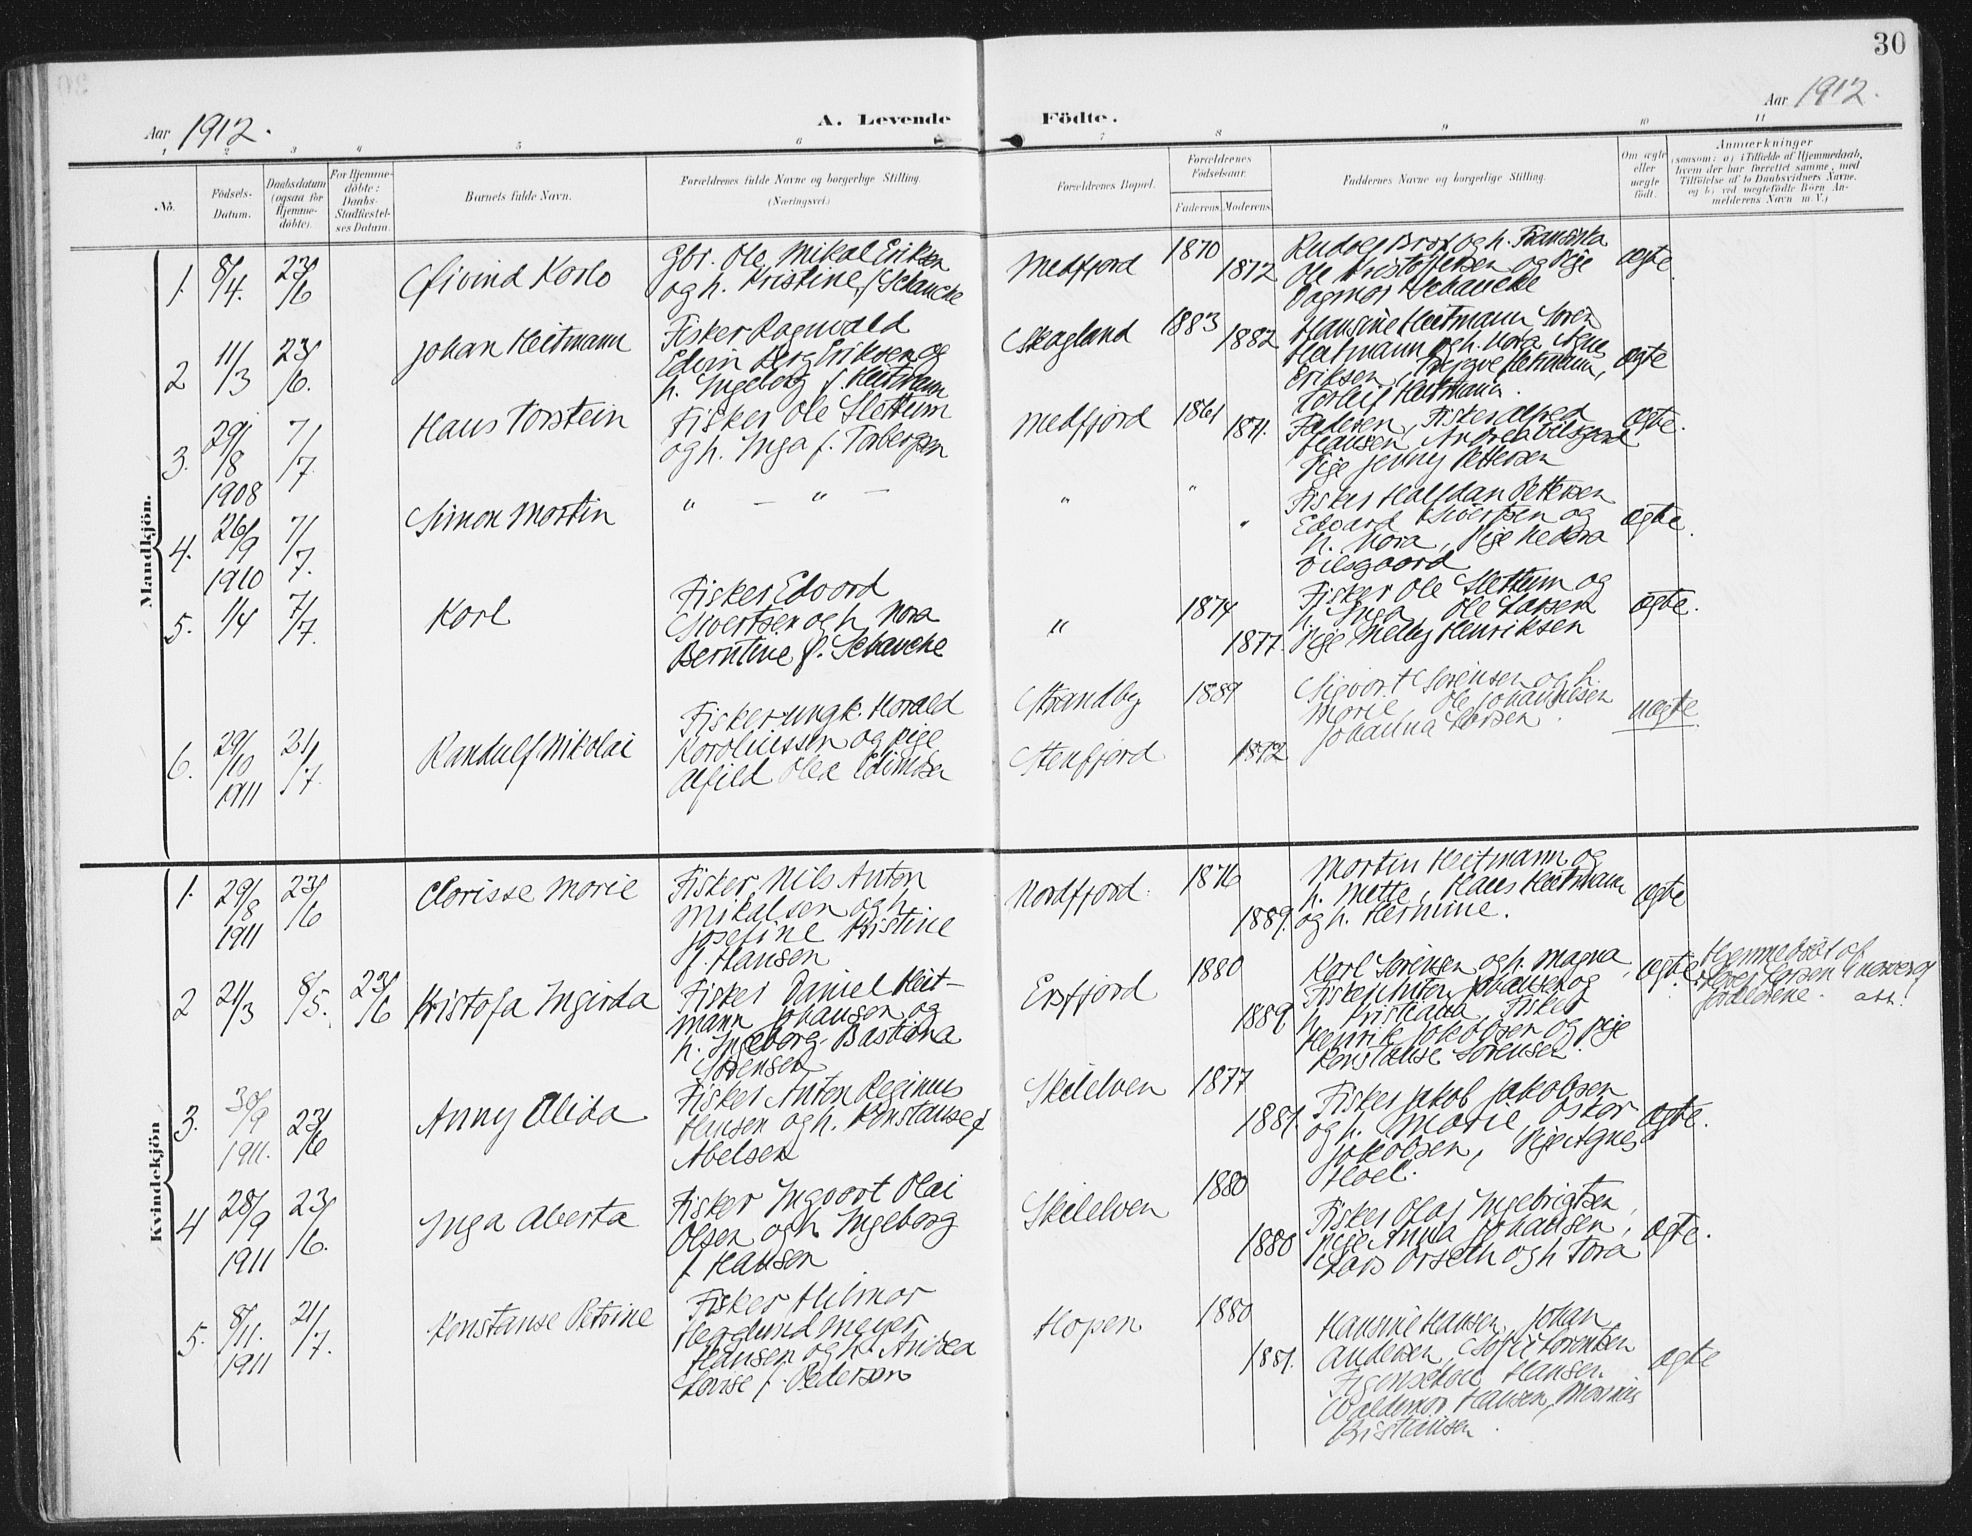 30
Aar 1912.
A. Levende Födte.
Aar 1912.
1 2 3 4 5 6 7 8 9 10 11
No.
Födsels-Datum.
Daabsdatum (ogsaa for Hjemme-döbte).
For Hjemme-döbte: Daabs-Stadfæstel-ses Datum.
Barnets fulde Navn.
Forældrenes fulde Navne og borgerlige Stilling.
(Næringsvei.)
Forældrenes Bopæl.
Forældrenes Födselsaar.
Faderens. Moderens.
Faddernes Navne og borgerlige Stilling.
Om ægte eller uægte födt.
Anmærkninger
(saasom: a) i Tilfælde af Hjemmedaab,
hvem der har forrettet samme, med
Tilföielse af to Daabsvidners Navne,
og b) ved uægtefödte Börn An-
melderens Navn m. V.)
Mandkjön.
1. 8/4. 23/6 Øivind Karlo
Gbr. Ole Mikal Eriksen
og h. Kristine f. Schancke
Medfjord 1870 1872
Rudolf Brox og h. Fransiska
Ole Kristoffersen og Pige
Dagmar Schancke
ægte
2 11/3 23/6. Johan Heitmann
Fisker Ragnvald
Edvin Berg Eriksen og
h. Ingeborg f. Heitmann
Skagland 1883 1882
Hansine Heitmann, Sören
Heitmann og h. Nora,
Eriksen, Trygve Heitmann,
Torleif Heitmann.
ægte
3. 29/8 1908 7/7. Hans Torstein
Fisker Ole Slettum
og h. Inga f. Torbergsen
Medfjord 1861 1871.
Faderen, Fisker Alfred
Hansen, Andrea Vilsgaard
Pige Jenny Pettersen
ægte.
4. 26/9 1910 7/7. Simon Martin
" — " —
" " "
Fisker Halfdan Pettersen
Edvard Sivertsen og
h. Nora, Pige Hedda
Vilsgaard
ægte.
5. 1/4 7/7. Karl
Fisker Edvard
Sivertsen og h. Nora
Berntine f. Schancke
" 1874 1877.
Fisker Ole Slettum og
h. Inga, Ole Larsen
Pige Melby Henriksen
ægte.
6. 29/10 1911 21/7. Randulf Nikolai
Fisker ungk. Harald
Karoliussen og pige
Alfild Olea Edvindsen
Strandby 1889
Stenfjord 1892
Sigvart Sørensen og h.
Marie, Ole Johannesen
Johanna Larsen.
uægte
Kvindekjön
1. 29/8 1911 23/6 Clarisse Marie
Fisker Nils Anton
Mikalsen og h.
Josefine Kristine
f. Hansen
Nordfjord. 1876 1889.
Martin Heitmann og
h. Mette, Hans Heitmann
og h. Hermine.
ægte
2 21/3 8/5. 23/6 Kristofa Ingirda
Fisker Daniel Heit-
mann Johansen og
h. Ingeborg Bastiana
Sørensen
Ersfjord 1880 1889
Karl Sørensen og h. Magna,
Fisker Johansen og
h. Kristiana, Fisker
Henrik Jakobsen og pige
Konstanse Sørensen.
ægte.
Hjemmedøbt af
forældrene.
3. 30/9 1911. 23/6 Anny Alida
Fisker Anton Reginus
Hansen og h. Konstanse f
Abelsen
Skilelven 1877 1881.
Fisker Jakob Jakobsen
og h. Marie, Oskar
Jakobsen, Pige Agnes
Hoel.
ægte.
4 28/9 1911 23/6. Inga Alberta
Fisker Ingvart Olai
Olsen og h. Ingeborg
f. Hansen
Skilelven 1880 1880
Fisker Olaf Ingebrigtsen,
pige Anna Johansen,
Lars Orseth og h Tora
ægte.
5. 8/11. 1911 21/7. Konstanse Petrine
Fisker Hilmar
Haglund Meyer
Hansen og h. Andrea
Lovise f. Pedersen
Hopen 1880 1881.
Hansine Hansen, Johan
Andersen, Sofie Sørensen
Hansen.
Waldemar Hansen, Marius
Kristiansen.
ægte